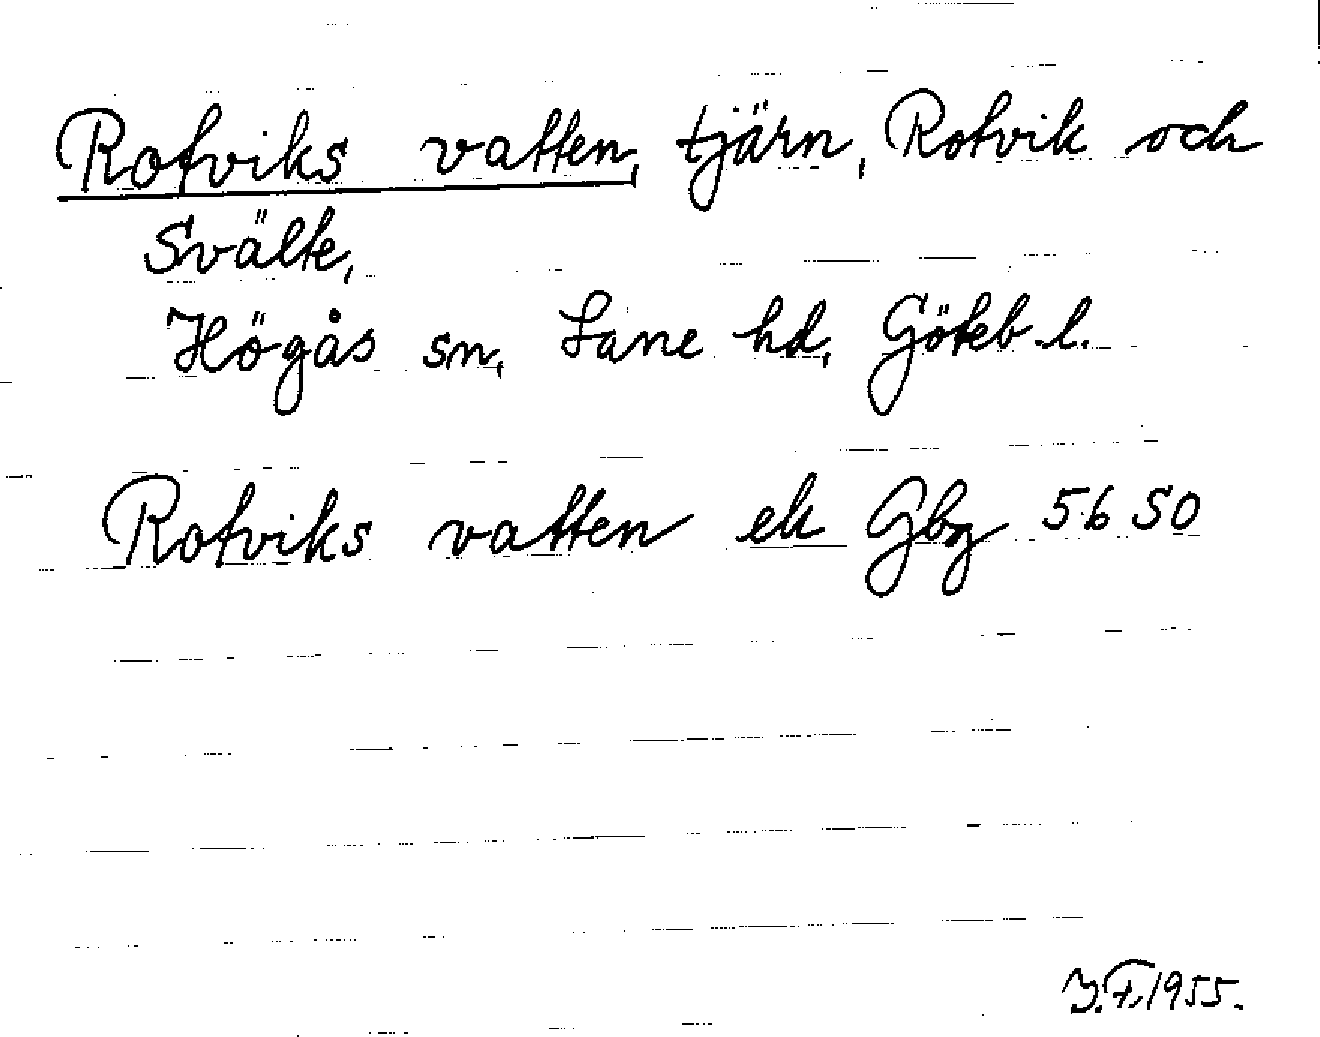 Rotviks vatten, tjärn, Rotvik och
Svälte,
Högås sn, Lane hd, Göteb. l.
Rotviks vatten ek Gbg 5650
Y.F. 1955.